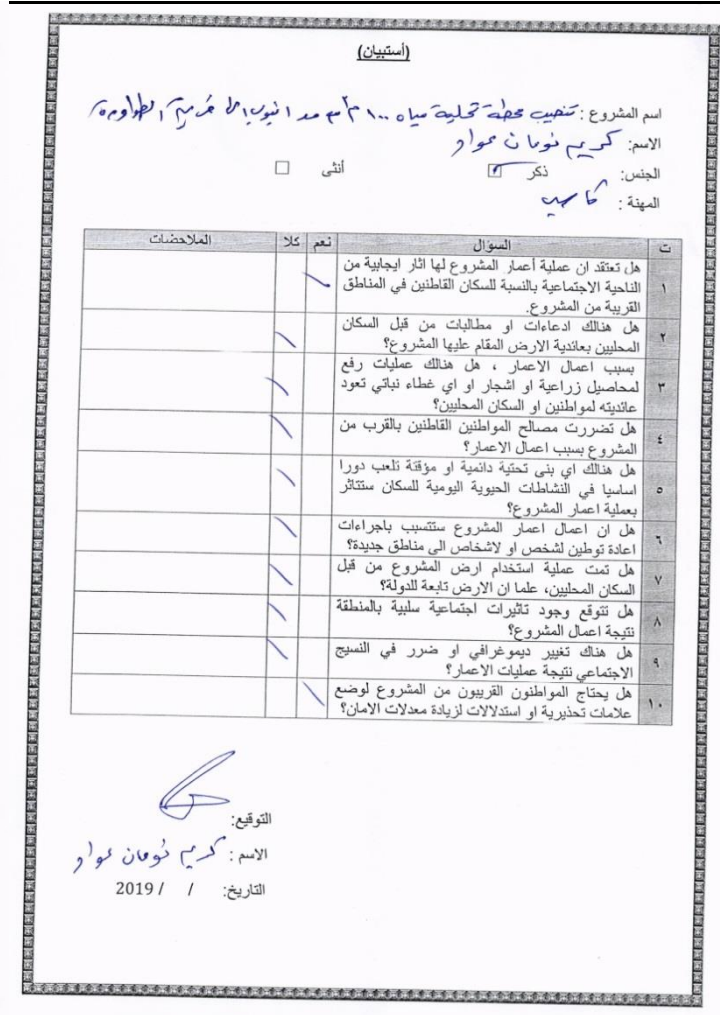 (أستبيان)
اسم المشروع : تنصيب محطة تحلية مياه ١٠٠ مد انبوب
الاسم: كريم نومان عواد
الجنس: ذكر أنثى
المهنة : كاسب
ت السؤال نعم كلا الملاحضات
١ هل تعتقد ان عملية أعمار المشروع لها اثار ايجابية من
الناحية الاجتماعية بالنسبة للسكان القاطنين في المناطق
القريبة من المشروع.
٢ هل هنالك ادعاءات او مطالبات من قبل السكان
المحليين بعائدية الارض المقام عليها المشروع؟
٣ بسبب اعمال الاعمار ، هل هنالك عمليات رفع
لمحاصيل زراعية او اشجار او اي غطاء نباتي تعود
عائديته لمواطنين او السكان المحليين؟
٤ هل تضررت مصالح المواطنين القاطنين بالقرب من
المشروع بسبب اعمال الاعمار؟
٥ هل هنالك اي بنى تحتية دائمية او مؤقتة تلعب دورا
اساسيا في النشاطات الحيوية اليومية للسكان ستتاثر
بعملية اعمار المشروع؟
٦ هل ان اعمال اعمار المشروع ستتسبب باجراءات
اعادة توطين لشخص او لاشخاص الى مناطق جديدة؟
٧ هل تمت عملية استخدام ارض المشروع من قبل
السكان المحليين، علما ان الارض تابعة للدولة؟
٨ هل تتوقع وجود تاثيرات اجتماعية سلبية بالمنطقة
نتيجة اعمال المشروع؟
٩ هل هناك تغيير ديموغرافي او ضرر في النسيج
الاجتماعي نتيجة عمليات الاعمار؟
١٠ هل يحتاج المواطنون القريبون من المشروع لوضع
علامات تحذيرية او استدلالات لزيادة معدلات الامان؟
التوقيع:
الاسم : كريم نومان عواد
التاريخ: / / 2019